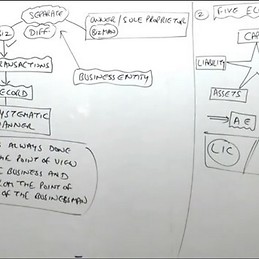 SEPARATE
OWNER / SOLE PROPRIETOR
BIZMAN
BIZ
DIFF
TRANSACTIONS
BUSINESS ENTITY
RECORD
SYSTEMATIC
MANNER
S ALWAYS DONE
THE POINT OF VIEW
E BUSINESS AND
FROM THE POINT OF
OF THE BUSINESSMAN
2 FIVE EL
CAP
LIABILIT
ASSETS
A E
LIC